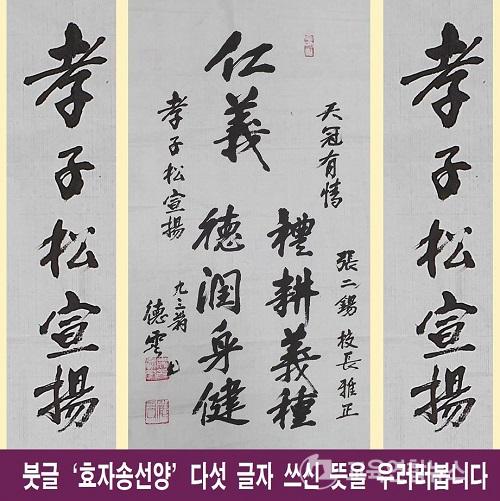 孝子松宣揚
仁義
天冠有情
禮耕義種
德潤身健
張二錫 校長雅正
孝子松宣揚
九三翁
德雲
孝子松宣揚
붓글 ‘효자송선양’ 다섯 글자 쓰신 뜻을 우러러봅니다